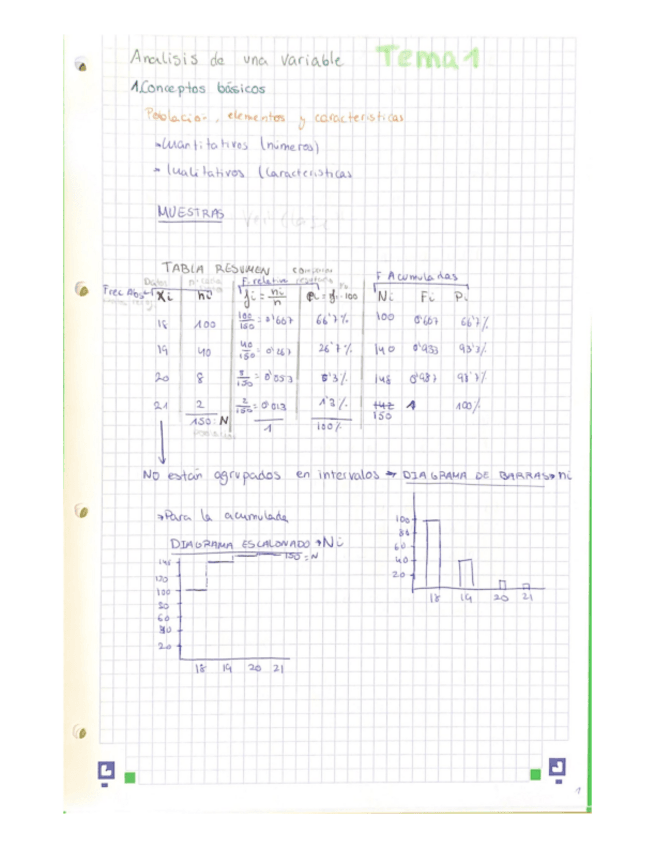 Analisis de una variable Tema 1
1. Conceptos básicos
Población, elementos y características
→ Cuantitativos (números)
→ Cualitativos (Características
MUESTRAS
TABLA RESUMEN
F. relativa F Acumuladas
Datos
Frec Abs Xi ni fi = ni/n Pi = fi · 100 Ni Fi Pi
18 100 100/150 = 0'667 66'7% 100 0'667 66'7%
19 40 40/150 = 0'267 26'7% 140 0'933 93'3%
20 8 8/150 = 0'053 5'3% 148 0'987 98'7%
21 2 2/150 = 0'013 1'3% 142 1 100%
150 = N 1 100% 150
No están agrupados en intervalos → DIAGRAMA DE BARRAS → ni
→ Para la acumulada
DIAGRAMA ESCALONADO → Ni
150 = N
148
120
100
80
60
40
20
18 19 20 21
100
80
60
40
20
18 19 20 21
1